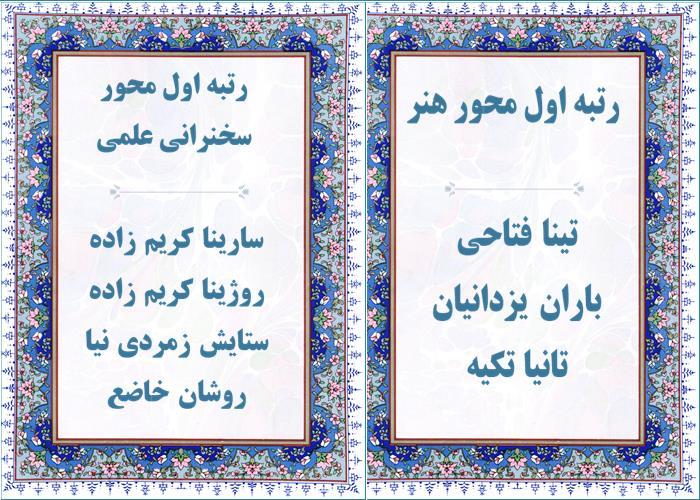 رتبه اول محور هنر
تینا فتاحی
باران یزدانیان
تانیا تکیه
رتبه اول محور
سخنرانی علمی
سارینا کریم زاده
روژینا کریم زاده
ستایش زمردی نیا
روشان خاضع